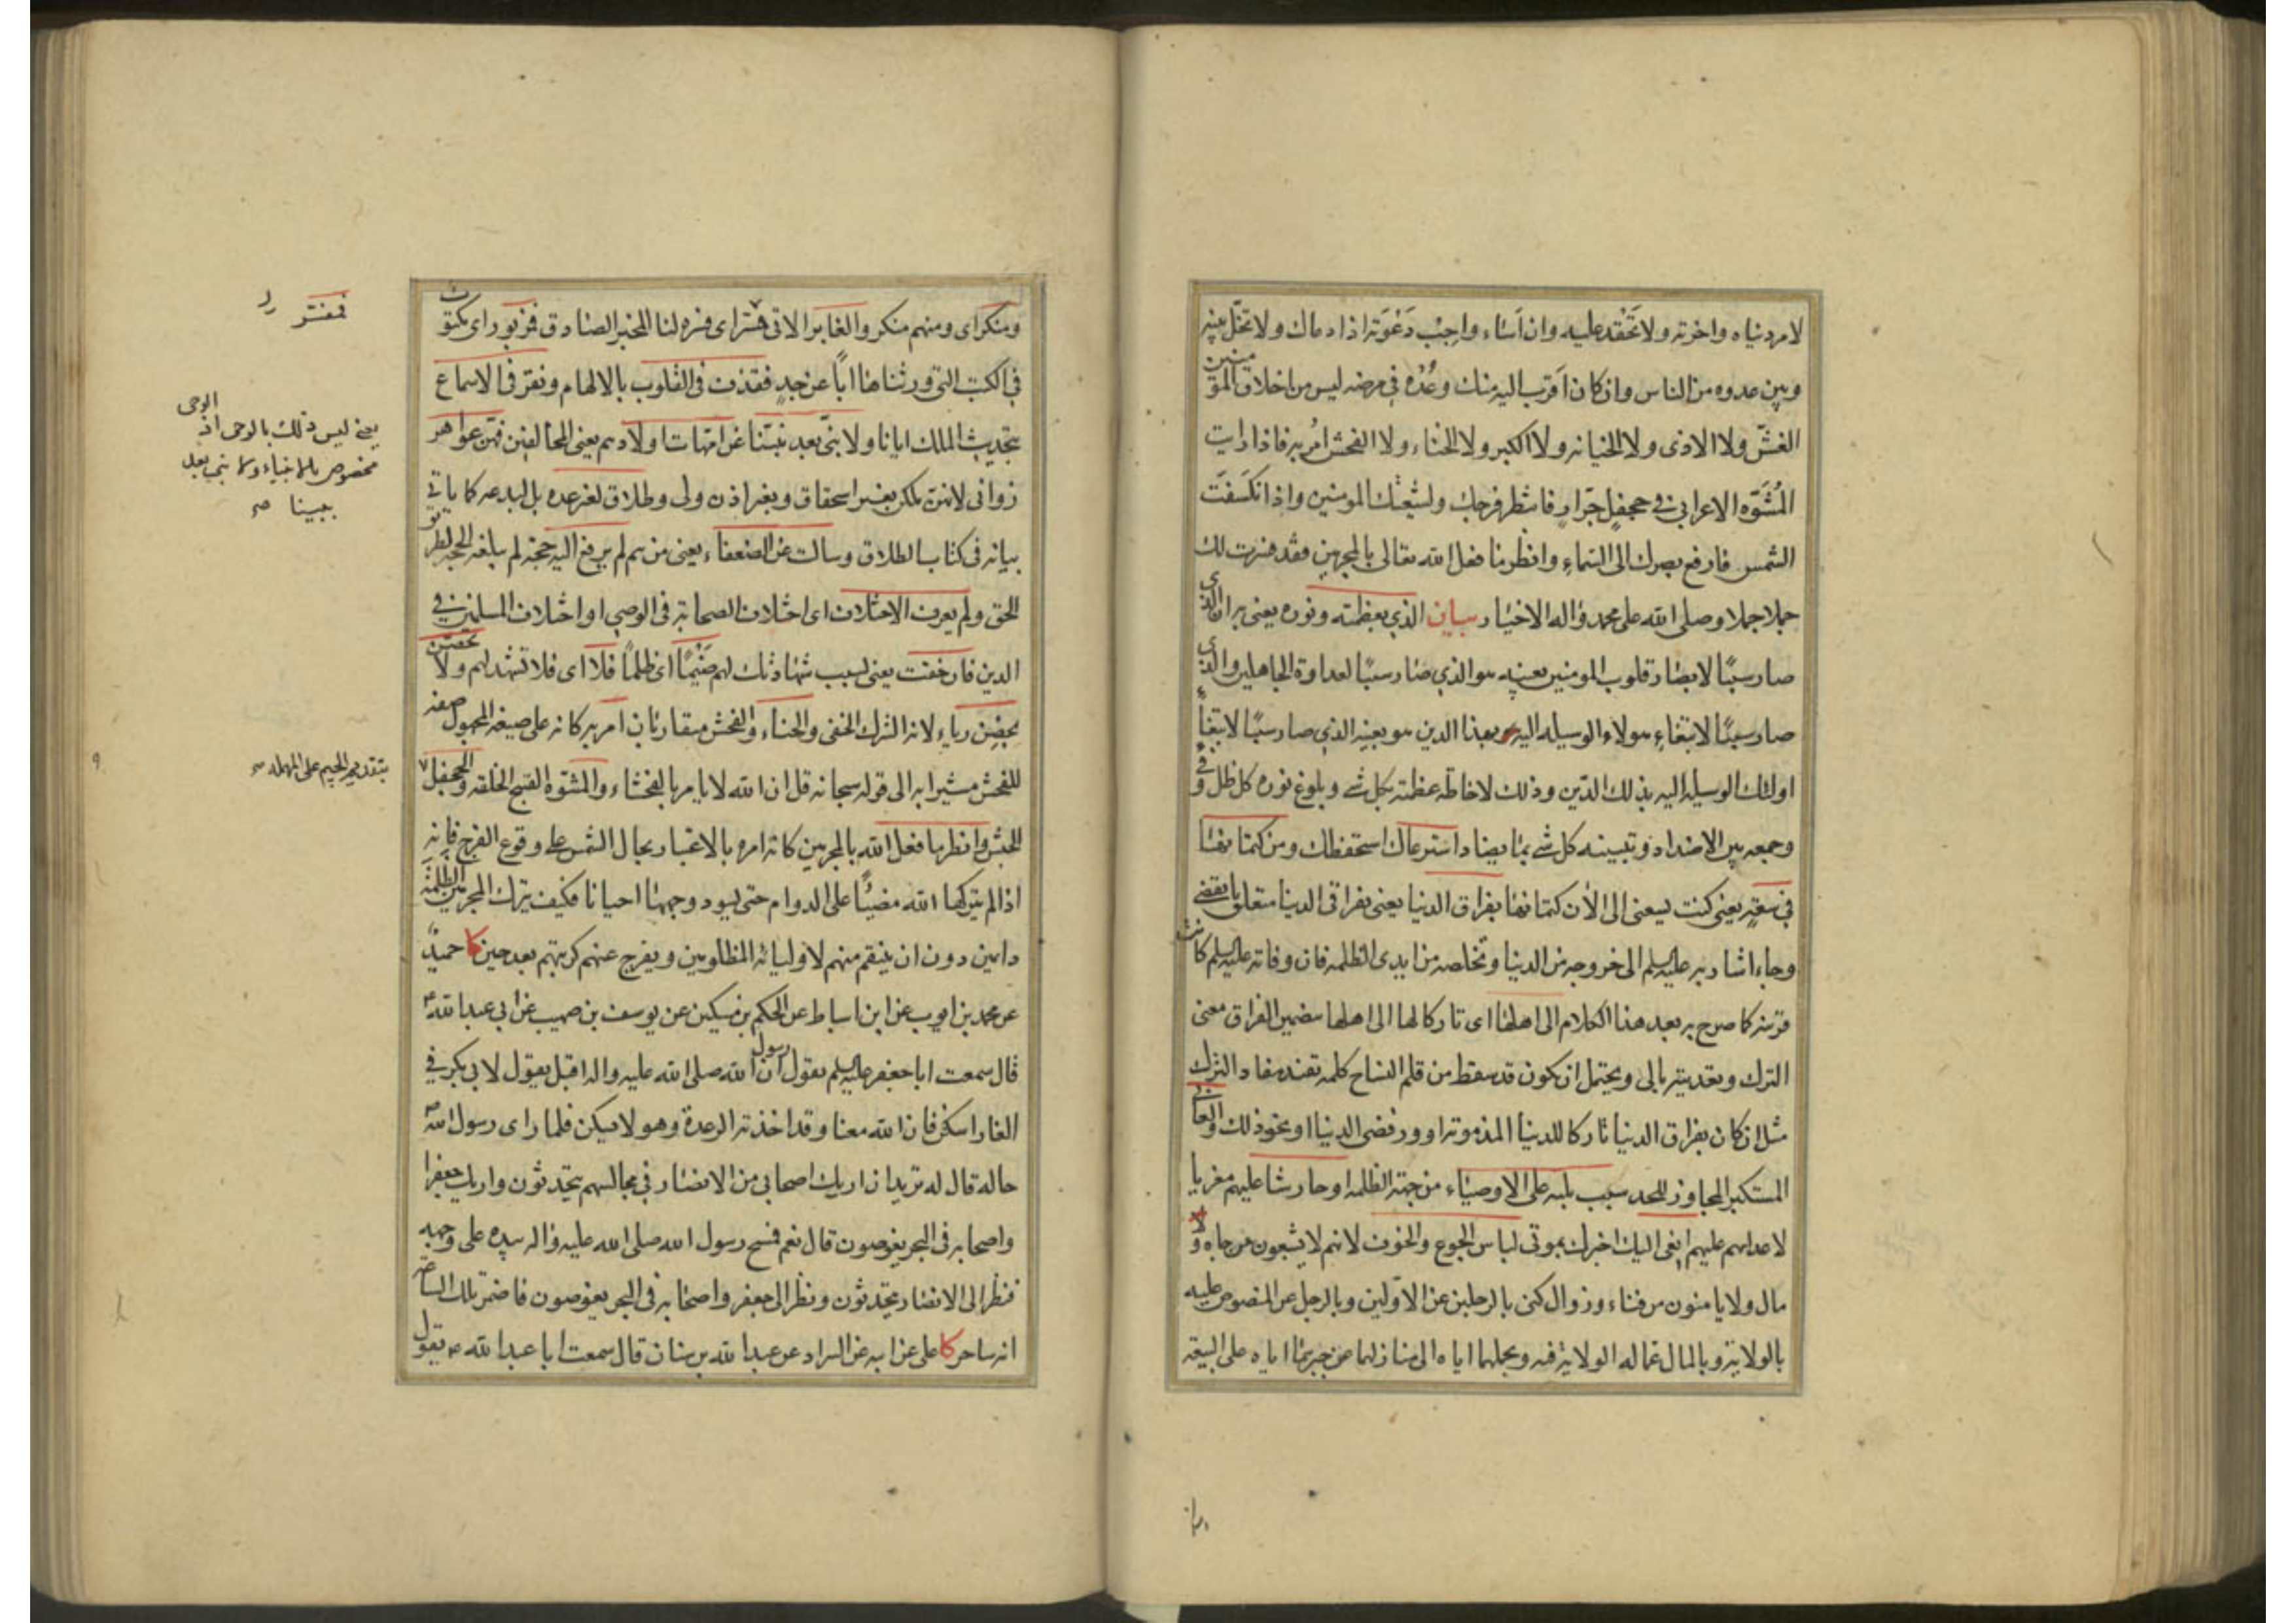 لامر دنياه واخرته ولا تحقد عليه وان أساء واجب دعوته اذا دعاك ولا تخل بينه
وبين عدوه من الناس وان كان اقرب اليه منك وعده في مرضه ليس من اخلاق المؤمنين
الغش ولا الاذى ولا الخيانه ولا الكبر ولا الخناء ولا الفحش ولا امر به فاذا رايت
المشوه الاعرابي في جحفل جرار فانتظر فرجك ولشيعتك المومنين واذا انكسفت
الشمس فارفع بصرك الى السماء وانظر ما فعل الله تعالى بالمجرمين فقد فسرت لك
جملا جملا وصلى الله على محمد واله الاخيار بيان الذي بعظمته ونوره يعني به ان الذي
صار سببا لابصار قلوب المومنين بعينه هو الذي صار سببا لعداوة الجاهلين والذي
صار سببا لابتغاء هولاء الوسيله اليه بهذا الدين هو بعينه الذي صار سببا لابتغاء
اولئك الوسيله اليه بذلك الدين وذلك لاحاطة عظمته بكل شي وبلوغ نوره كل ظل وفي
وجمعه بين الاضداد وتبيينه كل شي بما يضاد استرعاك استحفظك ومن كتمانها
في سعة يعني كنت يسعني الى الان كتمانها بفراق الدنيا يعني بفراقي الدنيا متعلق بانقضى
وجاء اشار به عليه السلم الى خروجه من الدنيا وتخلصه من ايدى الظلمه فان وفاته عليه السلم كانت
قريبه كما صرح به بعد هذا الكلام الى اهلها اى تاركا لها الى اهلها بتضمين الفراق معنى
الترك وتعديته بالى ويحتمل ان يكون قد سقط من قلم النساخ كلمه تفيد مفاد الترك
مثل ان كان بفراق الدنيا تاركا للدنيا المذمومة او ورفضى الدنيا او نحو ذلك والعاتي
المستكبر المجاوز للحد سبب بليه على الاوصياء من جهة الظلمه او حارشا عليهم مغريا
لاعدائهم عليهم انعى اليك اخبرك بموتى لباس الجوع والخوف لانهم لا يشبعون من جاه ولا
مال ولا يامنون من فناء وزوال كنى بالرجلين عن الاولين وبالرجل عن المنصوص عليه
بالولاية وبالمال عماله الولاية فيه وبحملهما اياه الى منازلهما عن جبرهما اياه على البيعة
ومنكر اى ومنهم منكر والغابر الاتى ففسر اى فسره لنا المخبر الصادق فمزبور اى مكتوب
في الكتب التي ورثناها ابا عن جد فقذف في القلوب بالالهام ونقر في الاسماع
بتحديث الملك ايانا ولا نبي بعد نبينا عن امهات اولادهم يعني المخالفين فهن عواهر
زواني لانهن ملكن بغير استحقاق وبغير اذن ولي وطلاق لغير عده بل البدعه كما ياتي
بيانه في كتاب الطلاق وسالت عن الضعفاء يعني من هم لم يرفع اليه حجة لم يبلغه الحجه لطريق
الحق ولم يعرف الاختلاف اى اختلاف الصحابة في الوصي او اختلاف المسلمين في
الدين فان خفت يعني بسبب شهادتك لهم ضيما اى ظلما فلا اى فلا تشهد لهم ولا تحصن
بحصن رياء لانه الشرك الخفي والخناء والفحش متقاربان امر به كانه على صيغه المجهول صفه
للفحش مشيرا به الى قوله سبحانه قل ان الله لا يامر بالفحشاء والمشوه القبيح الخلقه والجحفل
الجيش وانظر ما فعل الله بالمجرمين كانه امره بالاعتبار بحال الشمس على وقوع الفرج فانه
اذا لم يتركها الله مضيئا على الدوام حتى يسود وجهها احيانا فكيف يترك المجرمين الظلمة
دامين دون ان ينتقم منهم لاوليائه المظلومين ويفرج عنهم كربتهم بعد حين كا حميد
عن محمد بن ايوب عن ابن اسباط عن الحكم بن مسكين عن يوسف بن صهيب عن ابي عبد الله ع
قال سمعت ابا جعفر عليه السلم يقول ان رسول الله صلى الله عليه واله اقبل يقول لابي بكر في
الغار اسكن فان الله معنا وقد اخذته الرعدة وهو لا يسكن فلما راى رسول الله ص
حاله قال له تريد ان اريك اصحابي من الانصار في مجالسهم يتحدثون واريك جعفرا
واصحابه في البحر يغوصون قال نعم فمسح رسول الله صلى الله عليه واله بيده على وجهه
فنظر الى الانصار يتحدثون ونظر الى جعفر واصحابه في البحر يغوصون فاضمر تلك الساعه
انه ساحر كا علي عن ابيه عن السراد عن عبد الله بن سنان قال سمعت ابا عبد الله ع يقول
ففسر
يعني ليس ذلك بالوحي اذ الوحي
مخصوص بالانبياء ولا نبي بعد
نبينا ص
بتقديم الجيم على المهمله